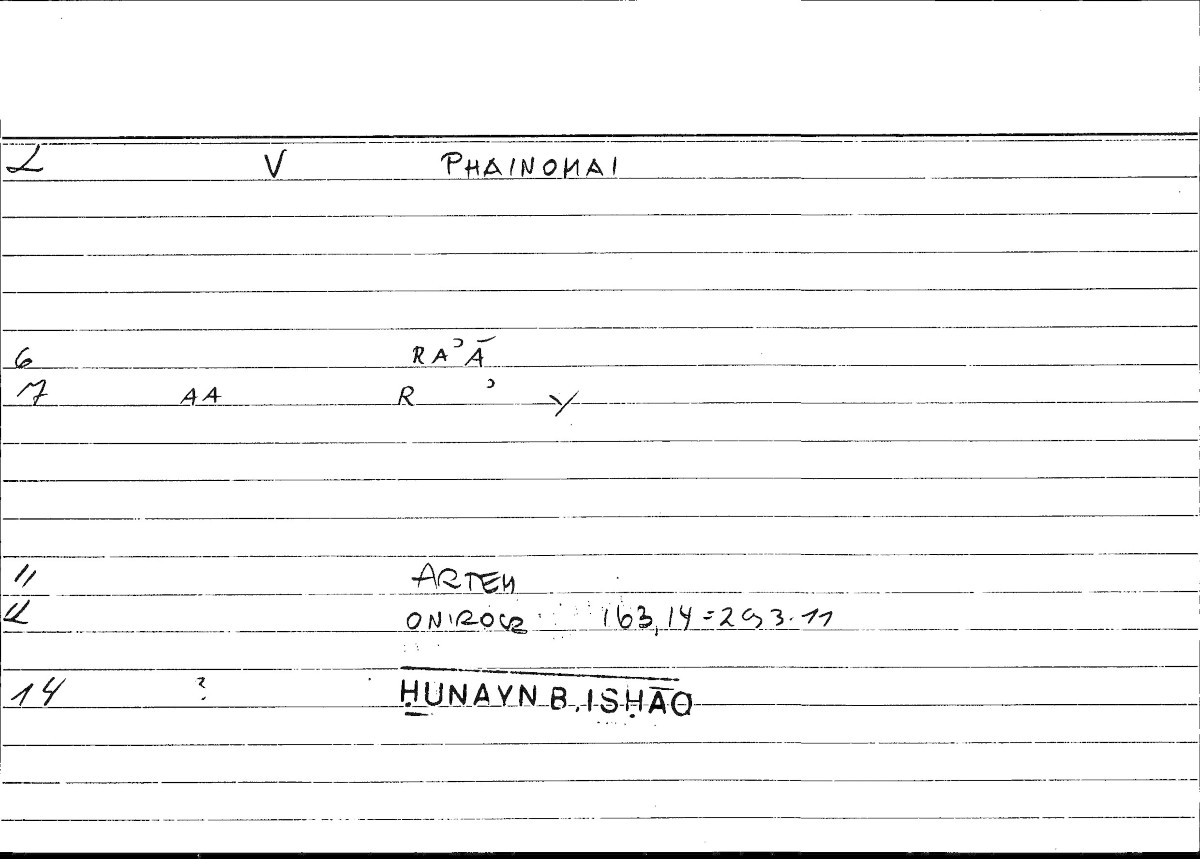 2 V PHAINOMAI
6 RAʾĀ
7 AA R ʾ Y
11 ARTEM
12 ONIROCR 163,14=293.11
14 ? ḤUNAYN B. ISḤĀQ